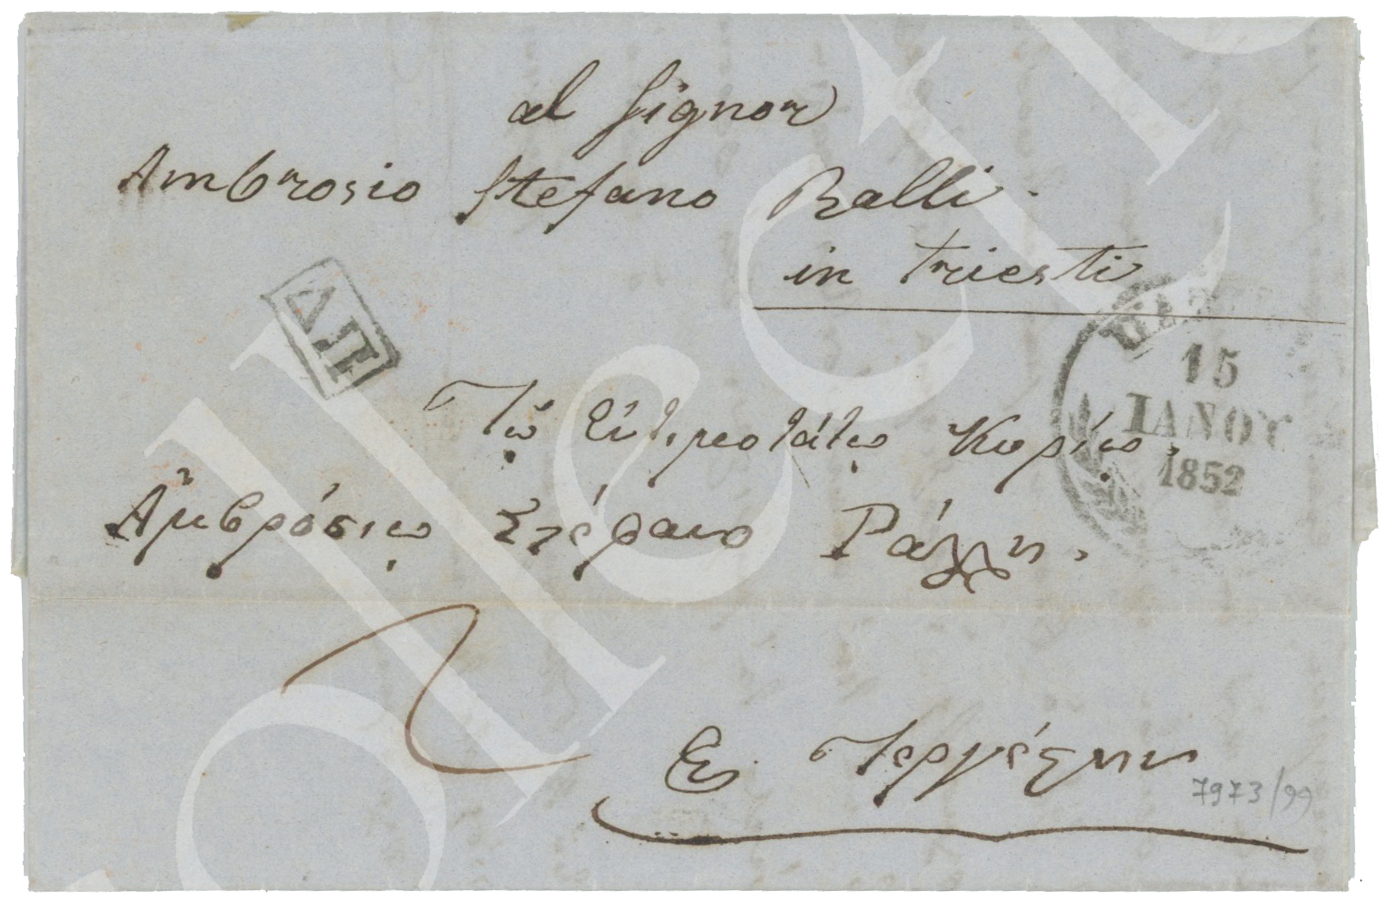 al Signor
Ambrosio Stefano Ralli
in Triesti
ΔΠ
15
ΙΑΝΟΥ
1852
Τῷ Εὐτιμοτάτῳ Κυρίῳ,
Ἀμβρόσιῳ Στέφανο Ράλλη.
2
Ες Τεργέστην
7973/99
collecti